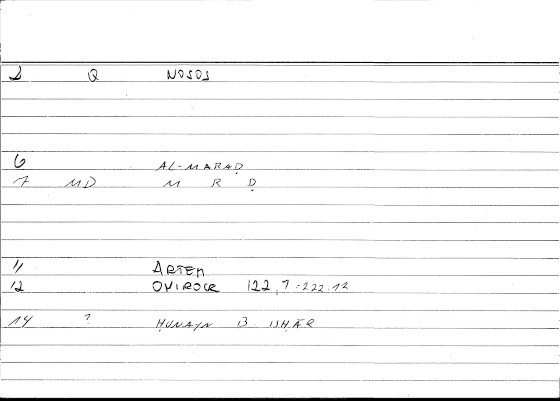 2 Q NOSOS
6 AL-MARAḌ
7 MD M R Ḍ
11 ARTEM
12 ONIROCR 122,7 = 222.12
14 ? ḤUNAYN B ISḤĀQ